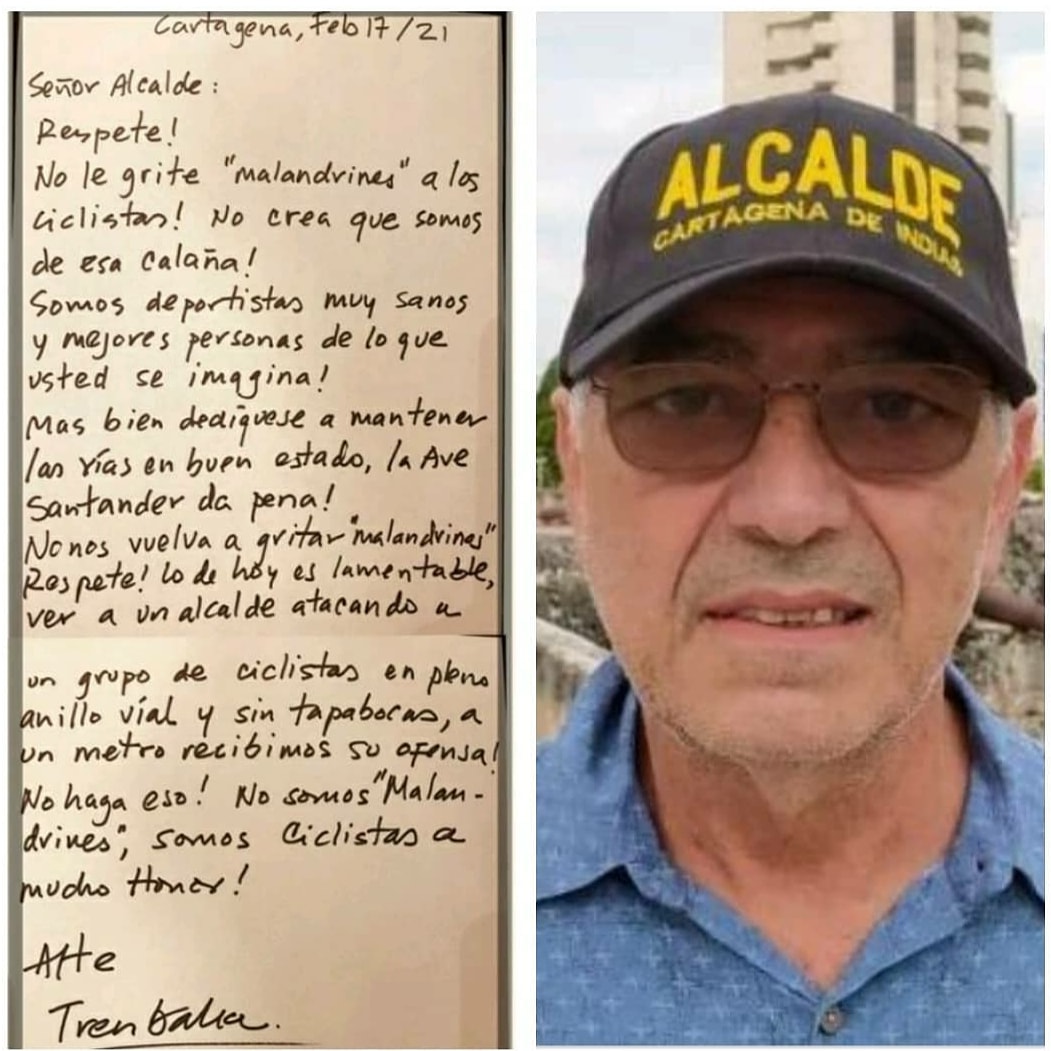 Cartagena, Feb 17/21
Señor Alcalde:
Respete!
No le grite "malandrines" a los
ciclistas! No crea que somos
de esa calaña!
Somos deportistas muy sanos
y mejores personas de lo que
usted se imagina!
Mas bien dediquese a mantener
las vías en buen estado, la Ave
Santander da pena!
No nos vuelva a gritar "malandrines"
Respete! lo de hoy es lamentable,
ver a un alcalde atacando a
un grupo de ciclistas en pleno
anillo vial y sin tapabocas, a
un metro recibimos su ofensa!
No haga eso! No somos "Malan-
drines", somos Ciclistas a
mucho Honor!
Atte
Tren bala.
ALCALDE
CARTAGENA DE INDIAS